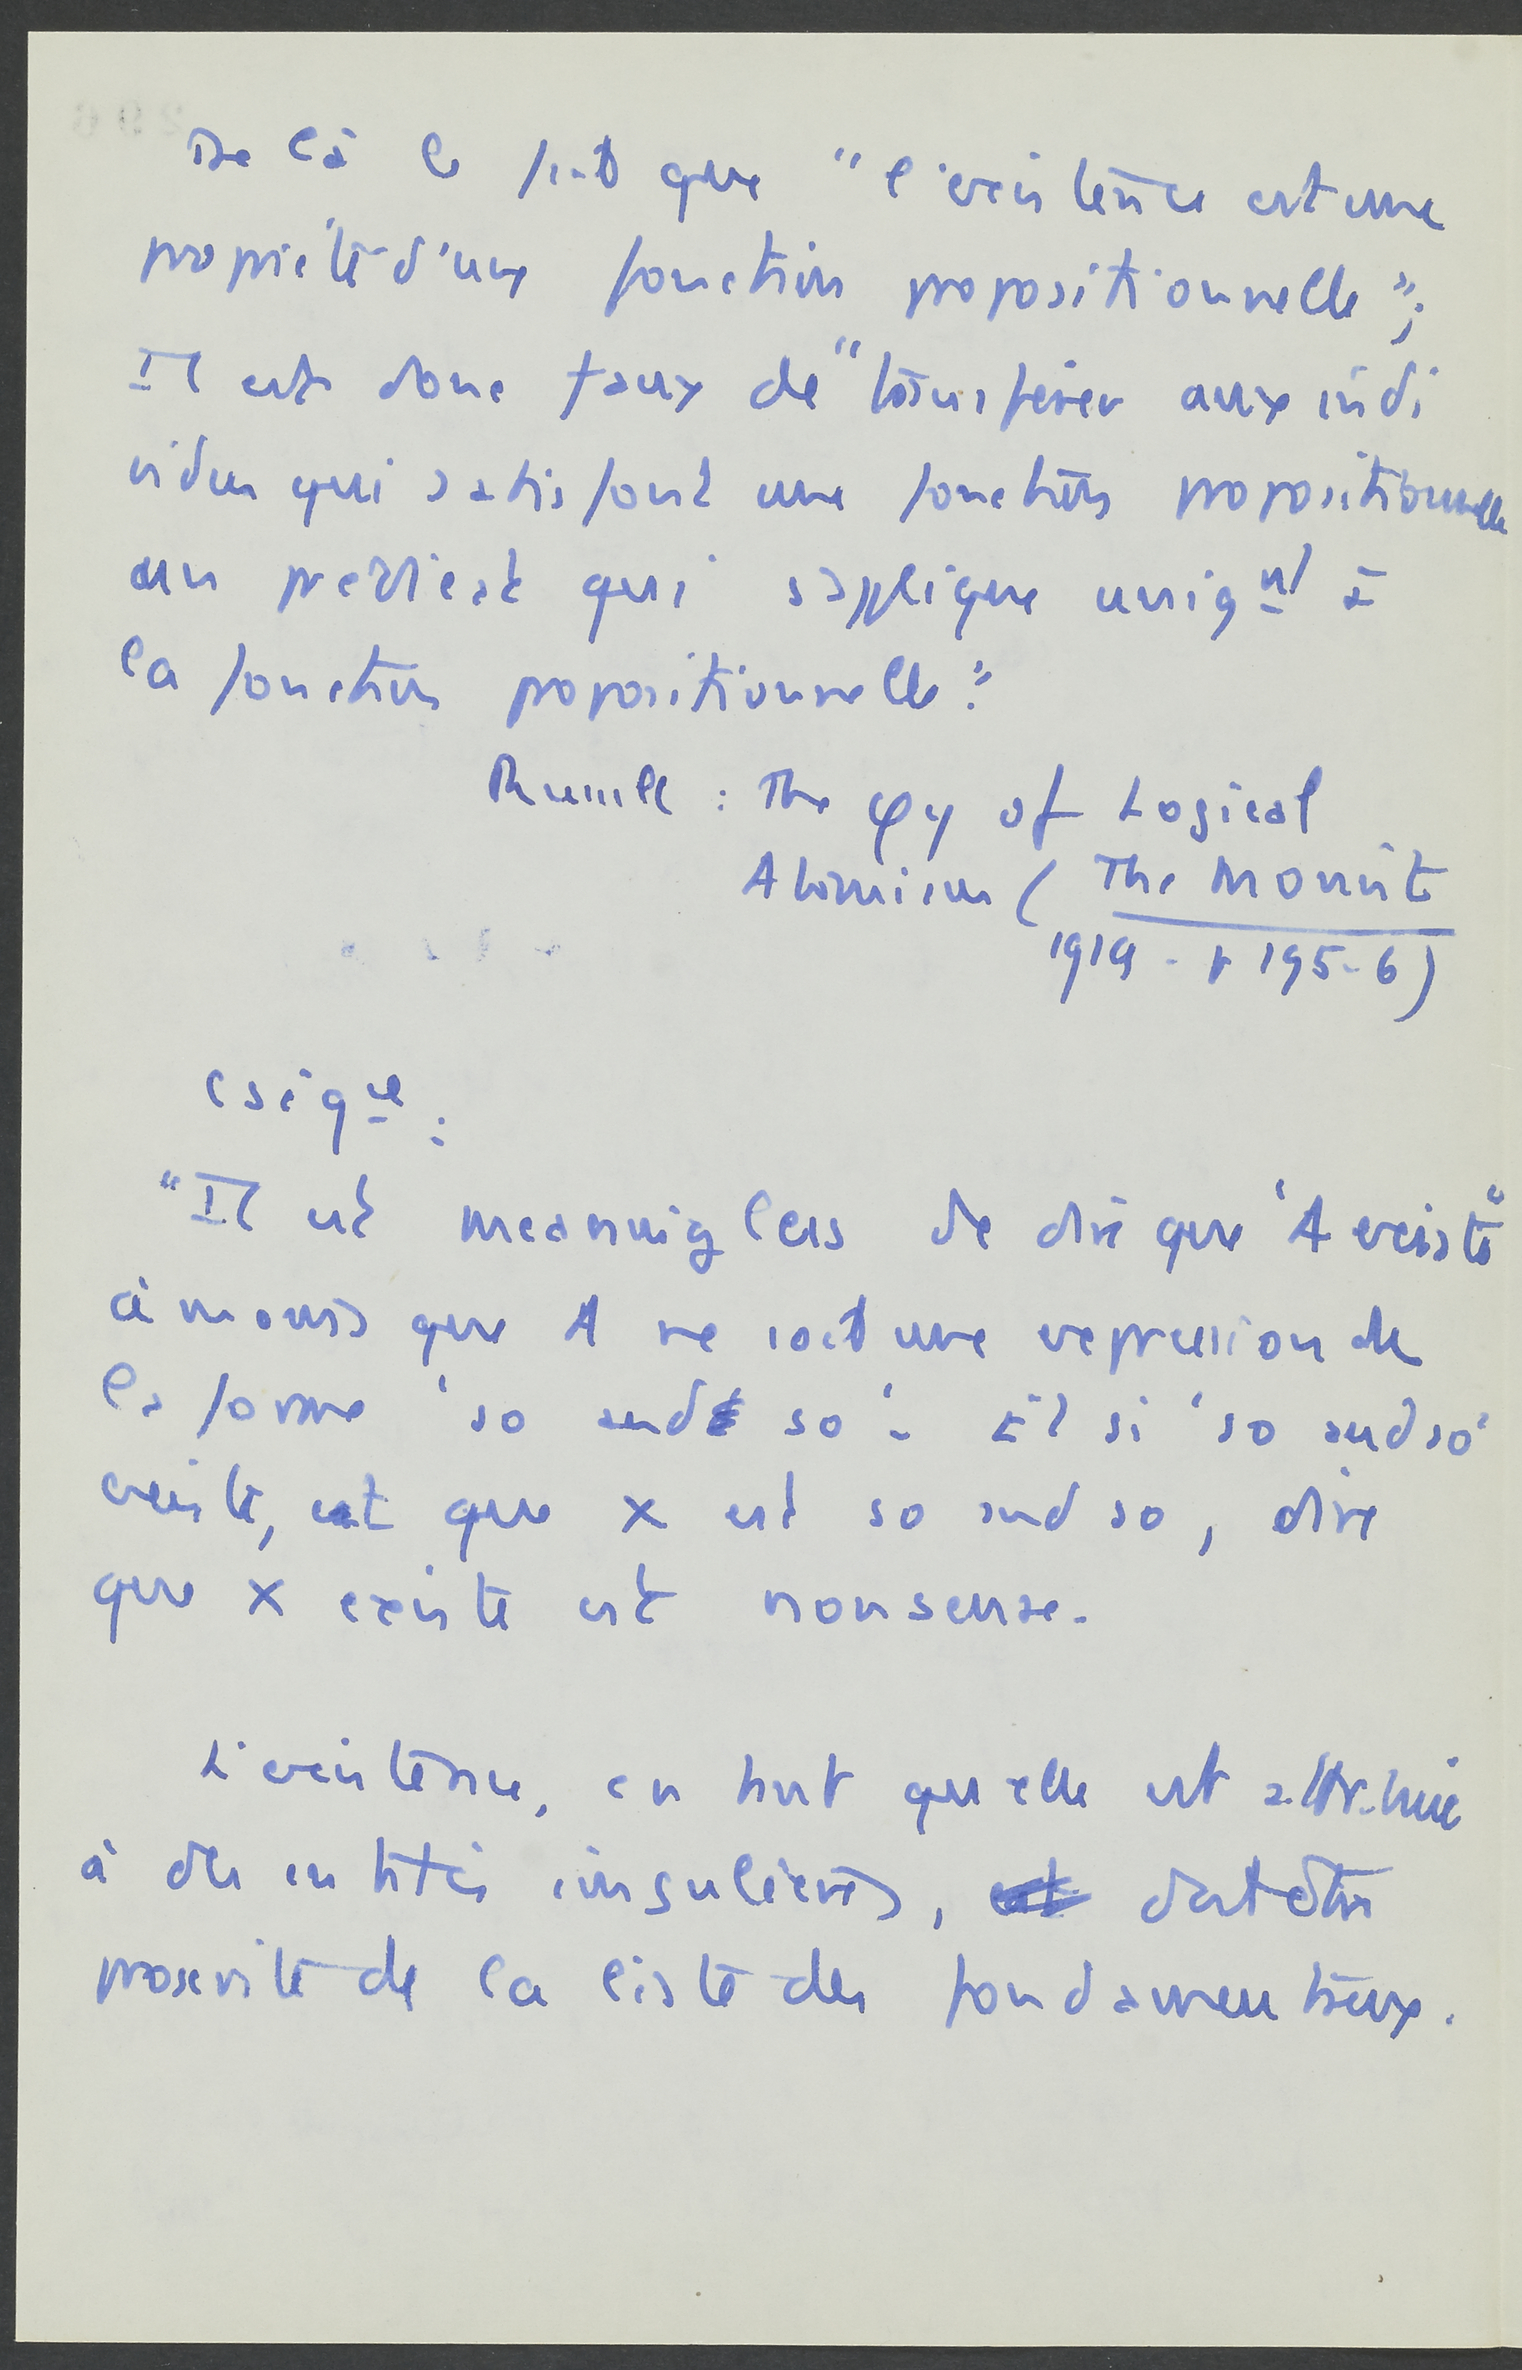 De là le fait que "l'existence est une
propriété d'une fonction propositionnelle";
Il est donc faux de "transférer aux indi
vidus qui satisfont une fonction propositionnelle
un prédicat qui s'applique uniqnt à
la fonction propositionnelle."
Russell : The φy of Logical
Atomism ( The Monist
1919 - p 195-6)
"Il est meaningless de dire que 'A existe"
à moins que A ne soit une expression de
la forme 'so and so'. Et si 'so and so'
existe, et que x est so and so, dire
que x existe est nonsense.
L'existence, en tant qu'elle est attribuée
à des entités singulières, doit être
proscrite de la liste des fondamentaux.